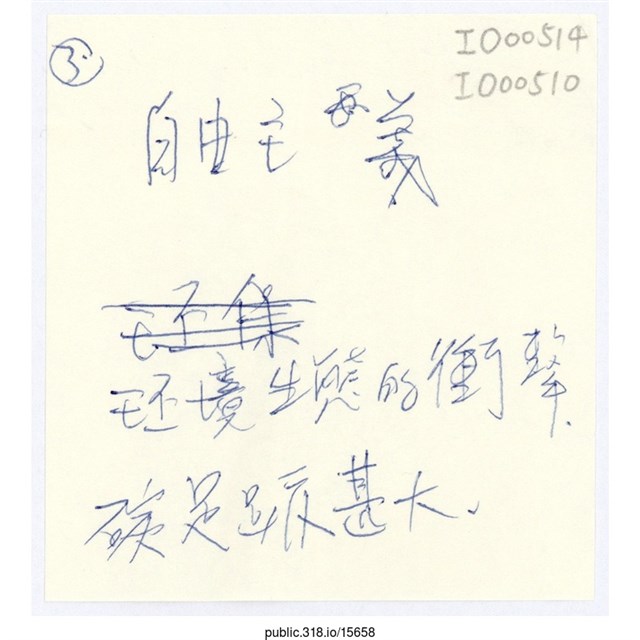 ③
IO00514
IO00510
自由主義
环境生態的衝擊
碳足跡甚大、
public.318.io/15658